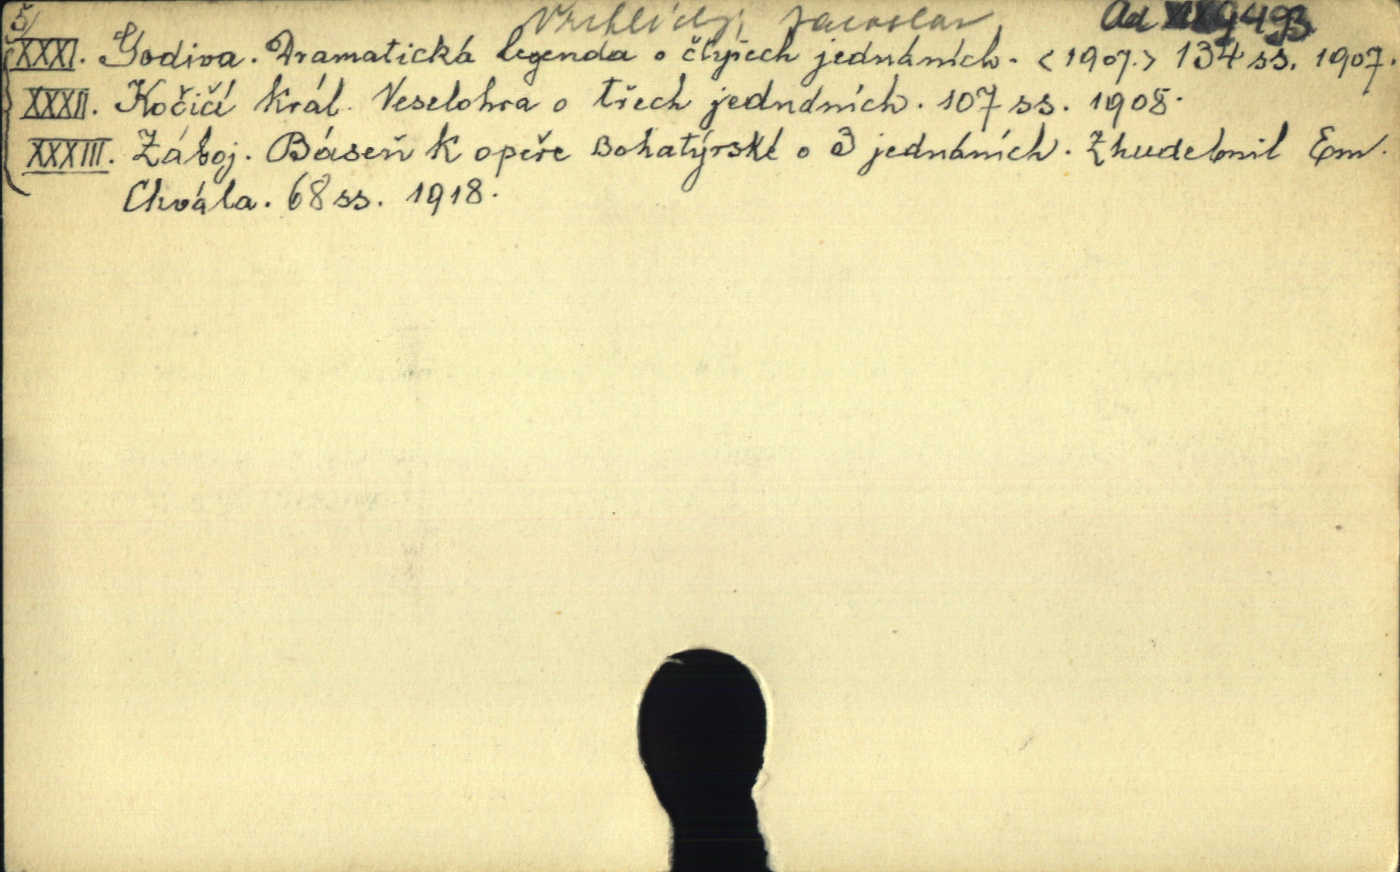 5/ Vrchlický, Jaroslav Ad 9493
XXXI. Godiva. Dramatická legenda o čtyřech jednáních. <1907.> 134 ss. 1907.
XXXII. Kočičí král. Veselohra o třech jednáních. 107 ss. 1908.
XXXIII. Záboj. Báseň k opeře bohatýrské o 3 jednáních. Zhudebnil Em.
Chvála. 68 ss. 1918.